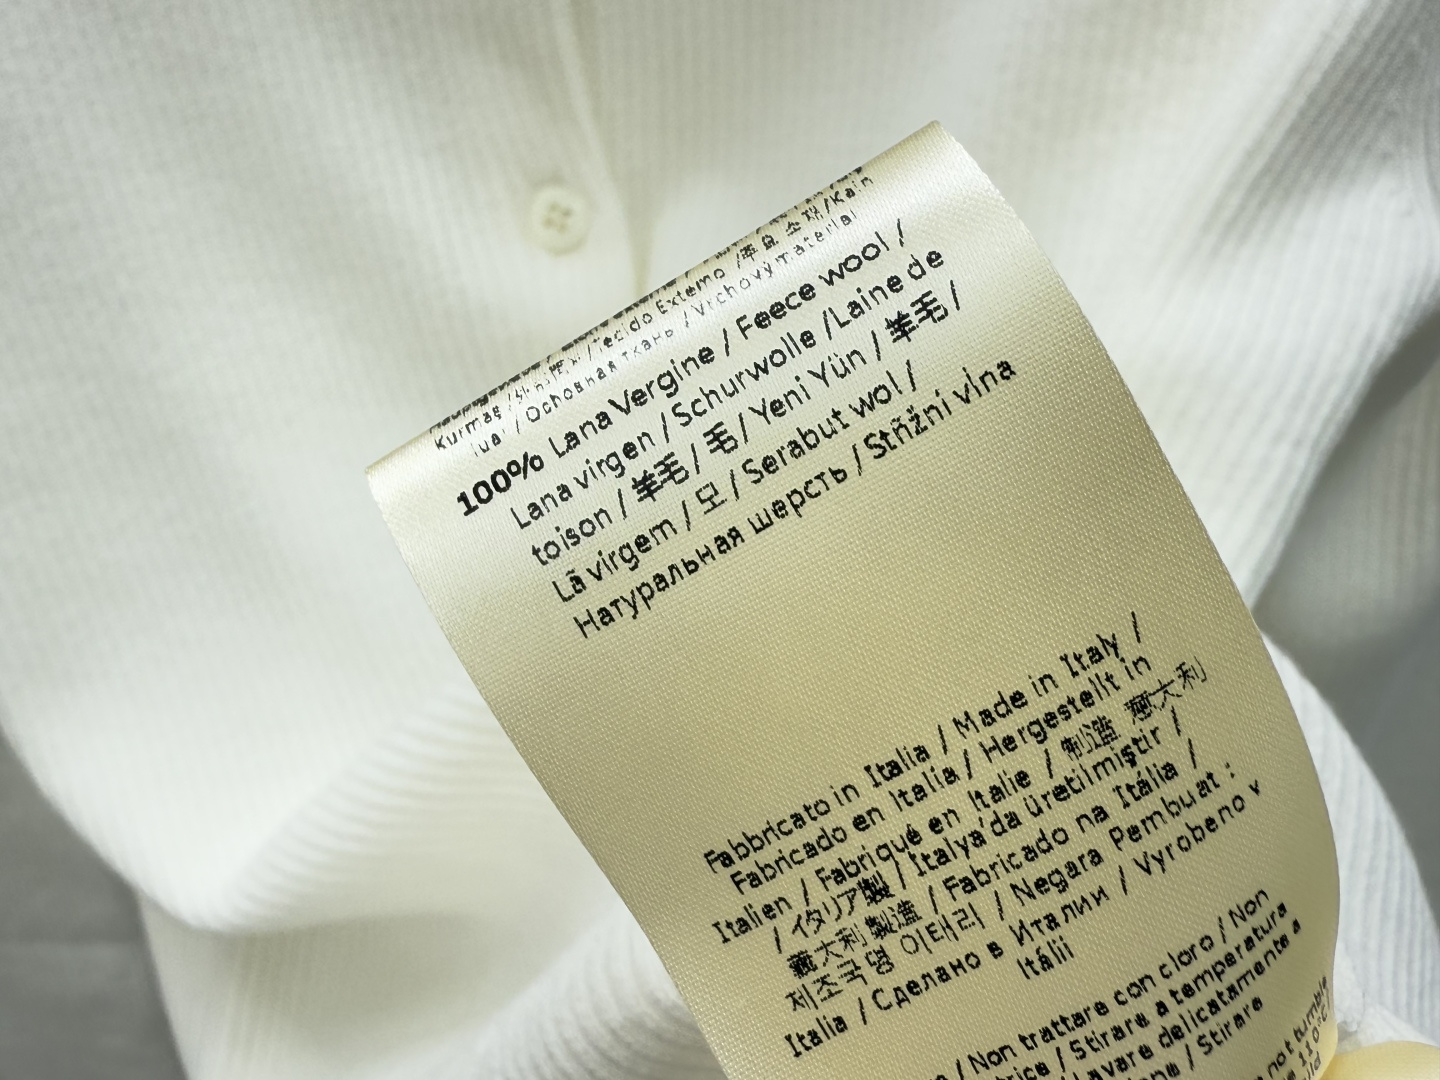 Kurmaş / Tecido Externo / 주요 소재 / Kain
luar / Основная ткань / Vrchový materiál
100% Lana Vergine / Feece wool /
Lana virgen / Schurwolle / Laine de
toison / 羊毛 / 毛 / Yeni Yün / 羊毛 /
Lã virgem / 모 / Serabut wol /
Натуральная шерсть / Stñžní vlna
Fabbricato in Italia / Made in Italy /
Fabricado en Italia / Hergestellt in
Italien / Fabriqué en Italie / 制造 意大利
/ イタリア製 / Italya'da üretilmiştir /
義大利 製造 / Fabricado na Itália /
제조국명 이태리 / Negara Pembuat :
Italia / Сделано в Италии / Vyrobeno v
Itálii
/ Non trattare con cloro / Non
/ Stirare a temperatura
Lavare delicatamente a
/ Stirare
not tumble
110°C